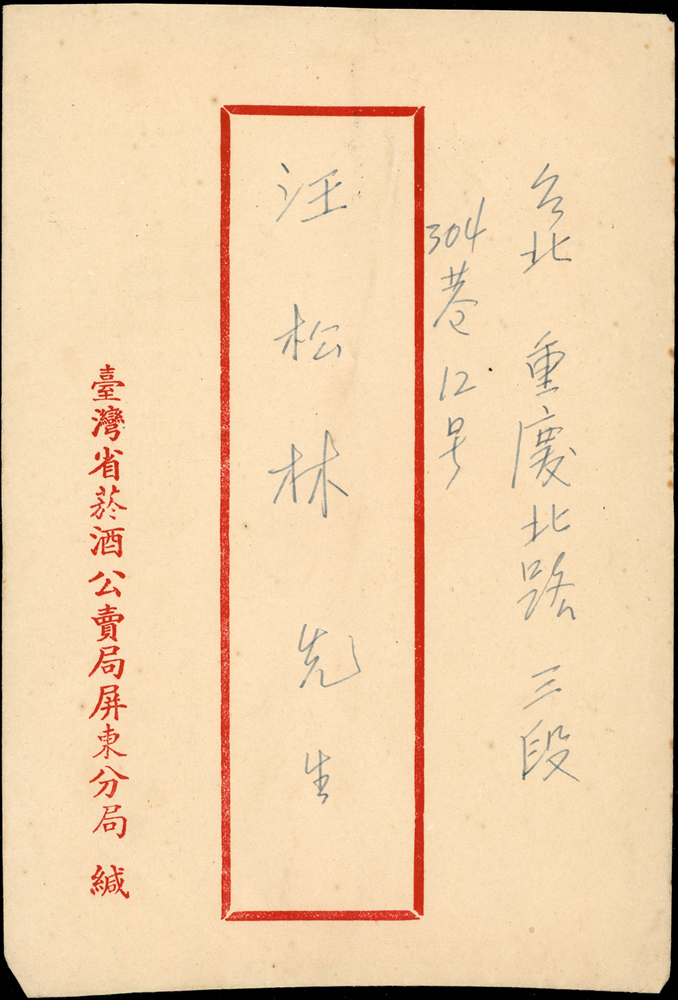 台北 重慶北路 三段
304巷12号
汪松林 先生
臺灣省菸酒公賣局屏東分局 緘